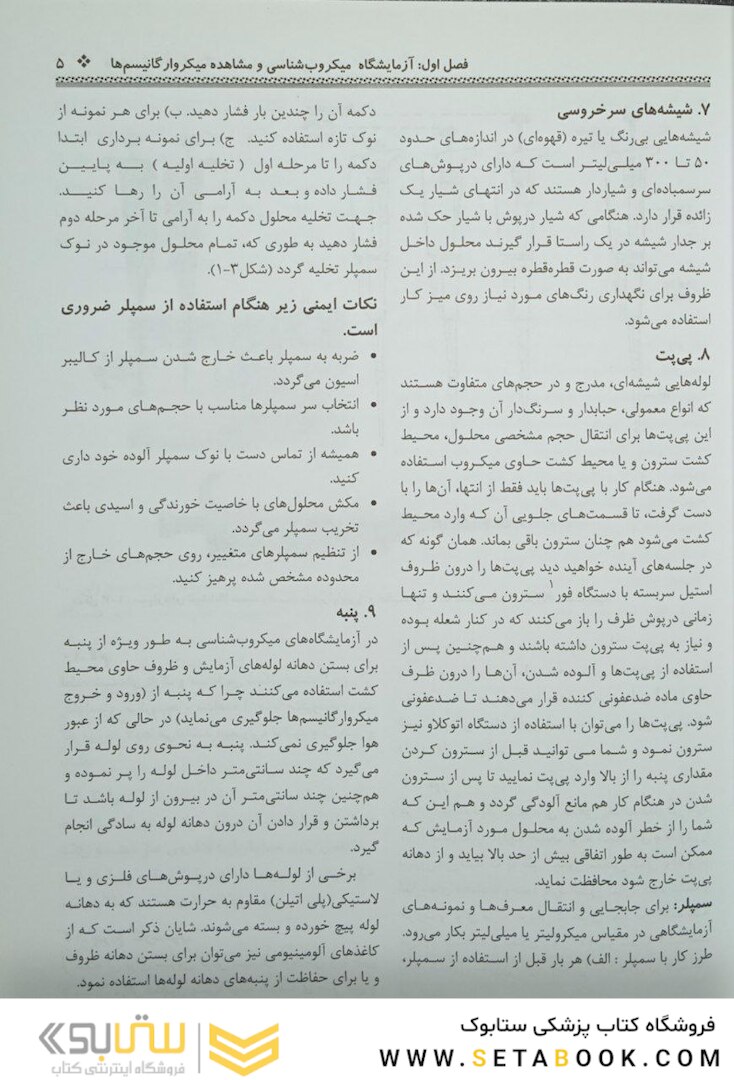 فصل اول: آزمایشگاه میکروب‌شناسی و مشاهده میکروارگانیسم‌ها ❖ ۵
۷. شیشه‌های سرخروسی
شیشه‌هایی بی‌رنگ یا تیره (قهوه‌ای) در اندازه‌های حدود
۵۰ تا ۳۰۰ میلی‌لیتر است که دارای درپوش‌های
سرسمباده‌ای و شیاردار هستند که در انتهای شیار یک
زائده قرار دارد. هنگامی که شیار درپوش با شیار حک شده
بر جدار شیشه در یک راستا قرار گیرند محلول داخل
شیشه می‌تواند به صورت قطره‌قطره بیرون بریزد. از این
ظروف برای نگهداری رنگ‌های مورد نیاز روی میز کار
استفاده می‌شود.
۸. پی‌پت
لوله‌هایی شیشه‌ای، مدرج و در حجم‌های متفاوت هستند
که انواع معمولی، حبابدار و سرنگ‌دار آن وجود دارد و از
این پی‌پت‌ها برای انتقال حجم مشخصی محلول، محیط
کشت سترون و یا محیط کشت حاوی میکروب استفاده
می‌شود. هنگام کار با پی‌پت‌ها باید فقط از انتها، آن‌ها را با
دست گرفت، تا قسمت‌های جلویی آن که وارد محیط
کشت می‌شود هم چنان سترون باقی بماند. همان گونه که
در جلسه‌های آینده خواهید دید پی‌پت‌ها را درون ظروف
استیل سربسته با دستگاه فور۱ سترون می‌کنند و تنها
زمانی درپوش ظرف را باز می‌کنند که در کنار شعله بوده
و نیاز به پی‌پت سترون داشته باشند و هم‌چنین پس از
استفاده از پی‌پت‌ها و آلوده شدن، آن‌ها را درون ظرف
حاوی ماده ضدعفونی کننده قرار می‌دهند تا ضدعفونی
شود. پی‌پت‌ها را می‌توان با استفاده از دستگاه اتوکلاو نیز
سترون نمود و شما می توانید قبل از سترون کردن
مقداری پنبه را از بالا وارد پی‌پت نمایید تا پس از سترون
شدن در هنگام کار هم مانع آلودگی گردد و هم این که
شما را از خطر آلوده شدن به محلول مورد آزمایش که
ممکن است به طور اتفاقی بیش از حد بالا بیاید و از دهانه
پی‌پت خارج شود محافظت نماید.
سمپلر: برای جابجایی و انتقال معرف‌ها و نمونه‌های
آزمایشگاهی در مقیاس میکرولیتر یا میلی‌لیتر بکار می‌رود.
طرز کار با سمپلر : الف) هر بار قبل از استفاده از سمپلر،
دکمه آن را چندین بار فشار دهید. ب) برای هر نمونه از
نوک تازه استفاده کنید. ج) برای نمونه برداری ابتدا
دکمه را تا مرحله اول ( تخلیه اولیه ) به پایین
فشار داده و بعد به آرامی آن را رها کنید.
جهت تخلیه محلول دکمه را به آرامی تا آخر مرحله دوم
فشار دهید به طوری که، تمام محلول موجود در نوک
سمپلر تخلیه گردد (شکل۳-۱).
نکات ایمنی زیر هنگام استفاده از سمپلر ضروری
است.
• ضربه به سمپلر باعث خارج شدن سمپلر از کالیبر
اسیون می‌گردد.
• انتخاب سر سمپلرها مناسب با حجم‌های مورد نظر
باشد.
• همیشه از تماس دست با نوک سمپلر آلوده خود داری
کنید.
• مکش محلول‌های با خاصیت خورندگی و اسیدی باعث
تخریب سمپلر می‌گردد.
• از تنظیم سمپلرهای متغییر، روی حجم‌های خارج از
محدوده مشخص شده پرهیز کنید.
۹. پنبه
در آزمایشگاه‌های میکروب‌شناسی به طور ویژه از پنبه
برای بستن دهانه لوله‌های آزمایش و ظروف حاوی محیط
کشت استفاده می‌کنند چرا که پنبه از (ورود و خروج
میکروارگانیسم‌ها جلوگیری می‌نماید) در حالی که از عبور
هوا جلوگیری نمی‌کند. پنبه به نحوی روی لوله قرار
می‌گیرد که چند سانتی‌متر داخل لوله را پر نموده و
هم‌چنین چند سانتی‌متر آن در بیرون از لوله باشد تا
برداشتن و قرار دادن آن درون دهانه لوله به سادگی انجام
گیرد.
برخی از لوله‌ها دارای درپوش‌های فلزی و یا
لاستیکی(پلی اتیلن) مقاوم به حرارت هستند که به دهانه
لوله پیچ خورده و بسته می‌شوند. شایان ذکر است که از
کاغذهای آلومینیومی نیز می‌توان برای بستن دهانه ظروف
و یا برای حفاظت از پنبه‌های دهانه لوله‌ها استفاده نمود.
فروشگاه کتاب پزشکی ستابوک
WWW.SETABOOK.COM
ستابوک
فروشگاه اینترنتی کتاب